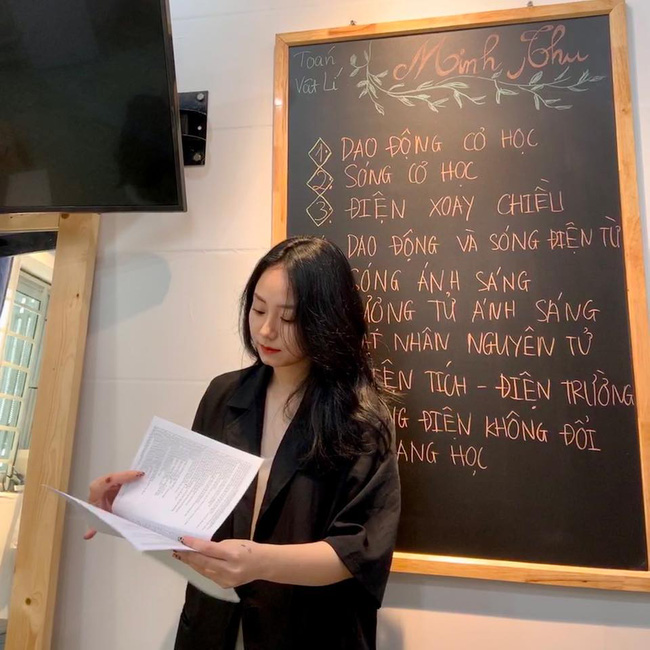 Toán
Vật Lí
Minh Thu
1. DAO ĐỘNG CƠ HỌC
2. SÓNG CƠ HỌC
3. ĐIỆN XOAY CHIỀU
DAO ĐỘNG VÀ SÓNG ĐIỆN TỪ
SÓNG ÁNH SÁNG
TỬ ÁNH SÁNG
NHÂN NGUYÊN TỬ
TÍCH - ĐIỆN TRƯỜNG
ĐIỆN KHÔNG ĐỔI
HỌC